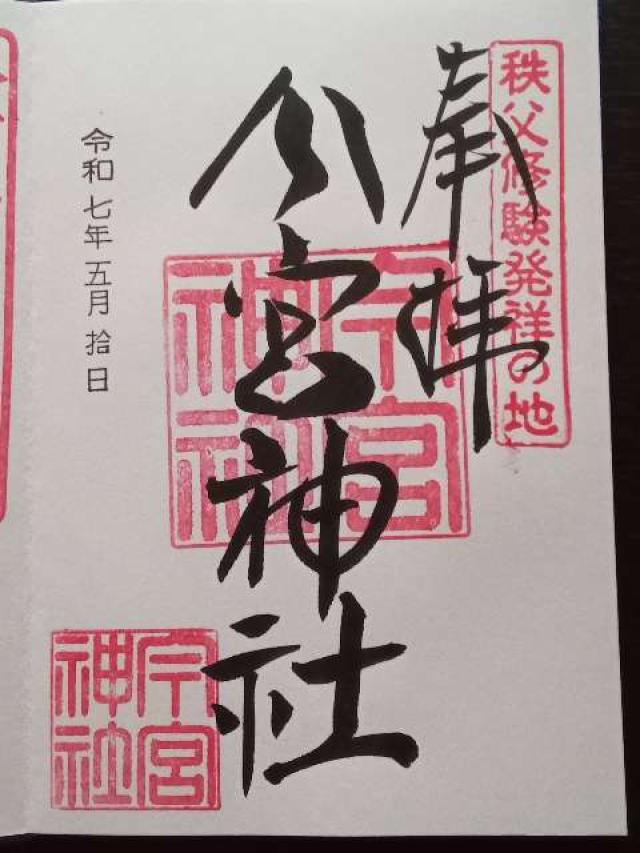 秩父修験発祥の地
奉拝
今宮神社
今宮神社
令和七年五月拾日
今宮神社